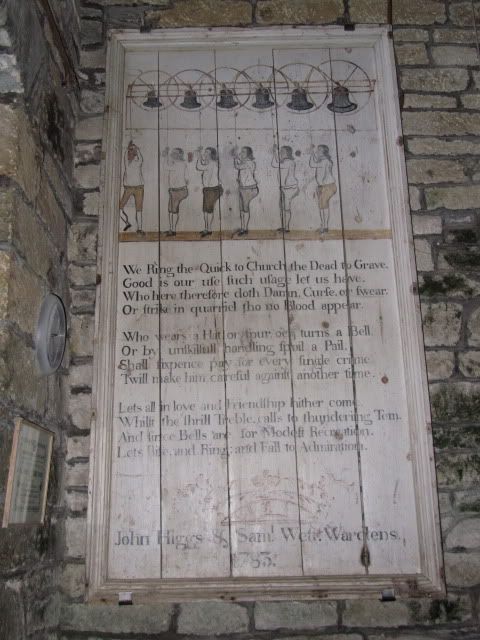 We Ring the Quick to Church, the Dead to Grave,
Good is our use, such usage let us have.
Who here therefore doth Damn, Curse, or swear,
Or strike in quarrel tho no Blood appear.
Who wears a Hat, or Spur, or turns a Bell
Or by unskilfull handling spoil a Pail,
Shall sixpence pay for every single crime
Twill make him careful against another time.
Lets all in love and Friendship hither come,
Whilst the shrill Treble, calls to thundering Tom,
And since Bells are for Modest Recreation,
Lets Rise, and Ring, and Fall to Admiration.
John Higgs & Saml. West. Wardens.
1783.